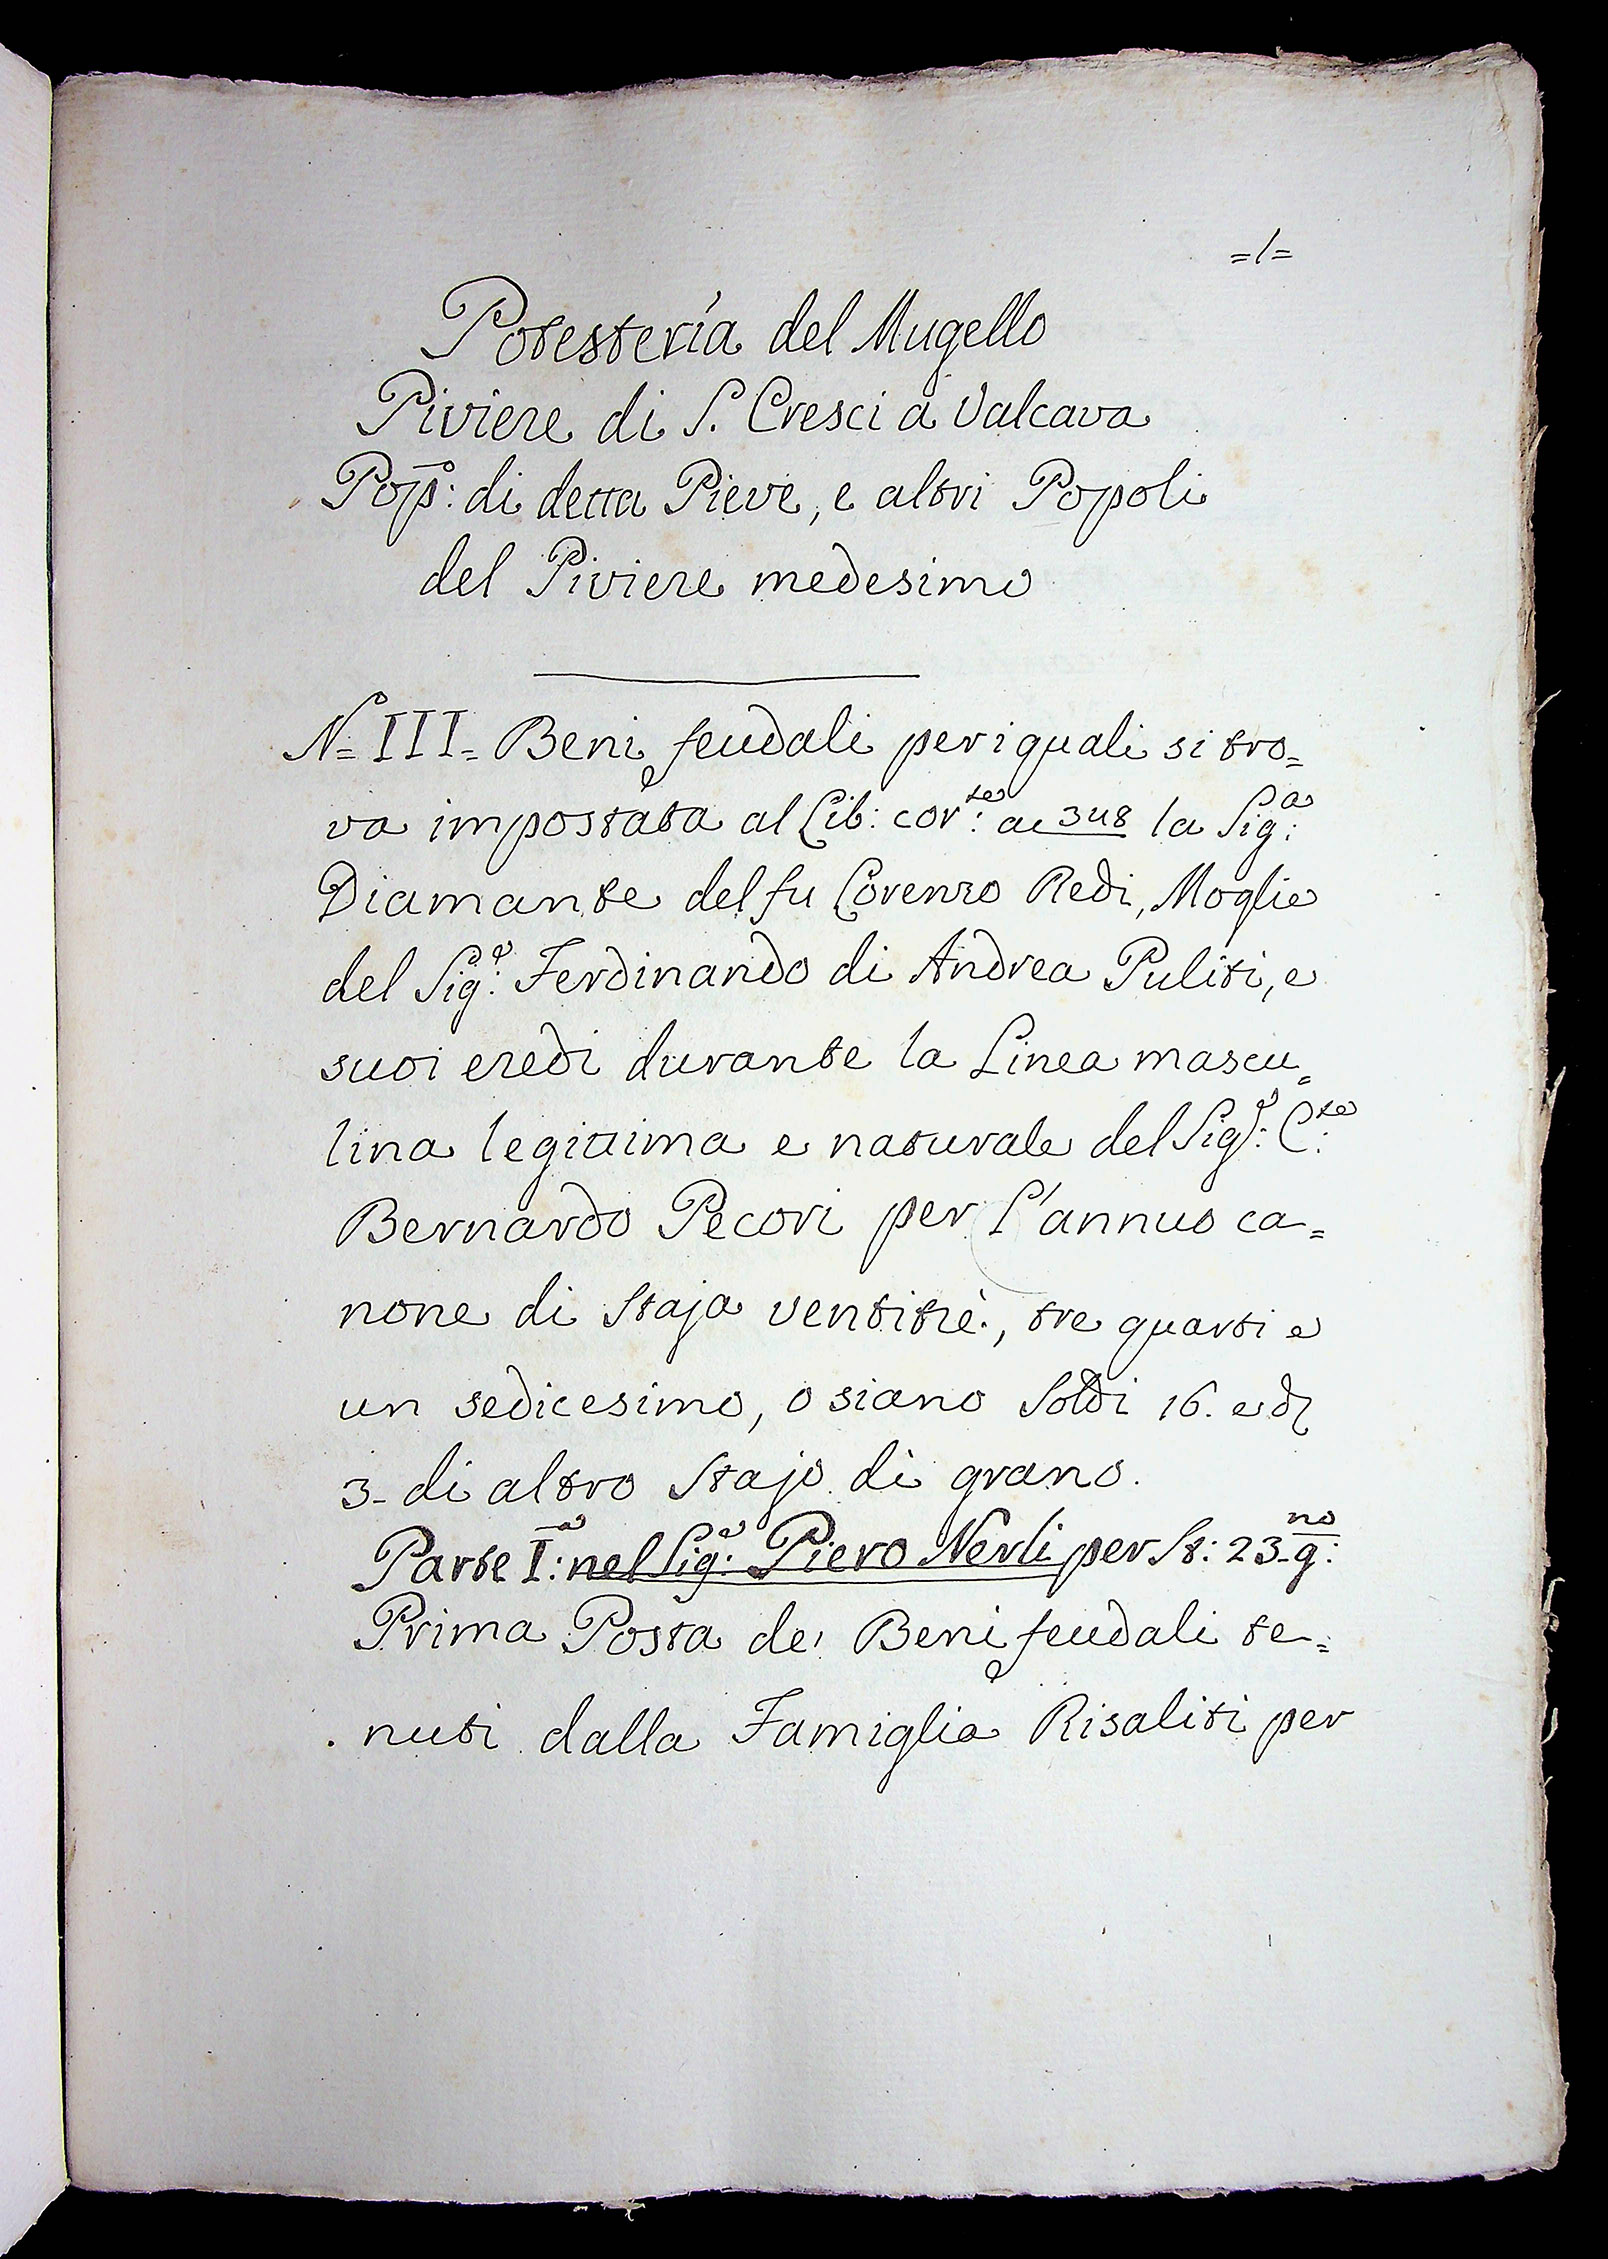 =1=
Potesterìa del Mugello
Piviere di S. Cresci a Valcava
Pop̄o: di detta Pieve, e altri Popoli
del Piviere medesimo
N= III= Beni feudali per i quali si tro=
va impostata al Lib: cor:te a 348 la Sig:a
Diamante del fu Lorenzo Redi, Moglie
del Sig:e Ferdinando di Andrea Puliti, e
suoi eredi durante la Linea mascu=
lina legittima e naturale del Sig:e C:te
Bernardo Pecori per l'annuo ca=
none di Staja ventitrè, tre quarti e
un sedicesimo, o siano Soldi 16. e d
3- di altro Stajo di grano.
Parte I:a nel Sig:e Piero Nerli per St: 23- g:no
Prima Posta de' Beni feudali te=
nuti dalla Famiglia Risaliti per